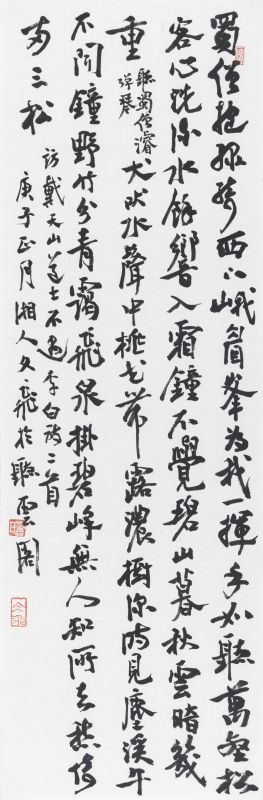 蜀僧抱綠綺西下峨眉峯為我一揮手如聽萬壑松
客心洗流水餘響入霜鐘不覺碧山暮秋雲暗幾
重
聽蜀僧濬
彈琴
犬吠水聲中桃花帶露濃樹深時見鹿溪午
不聞鐘野竹分青靄飛泉掛碧峰無人知所去愁倚
兩三松
訪戴天山道士不遇李白詩二首
庚子正月湘人於聽雲閣